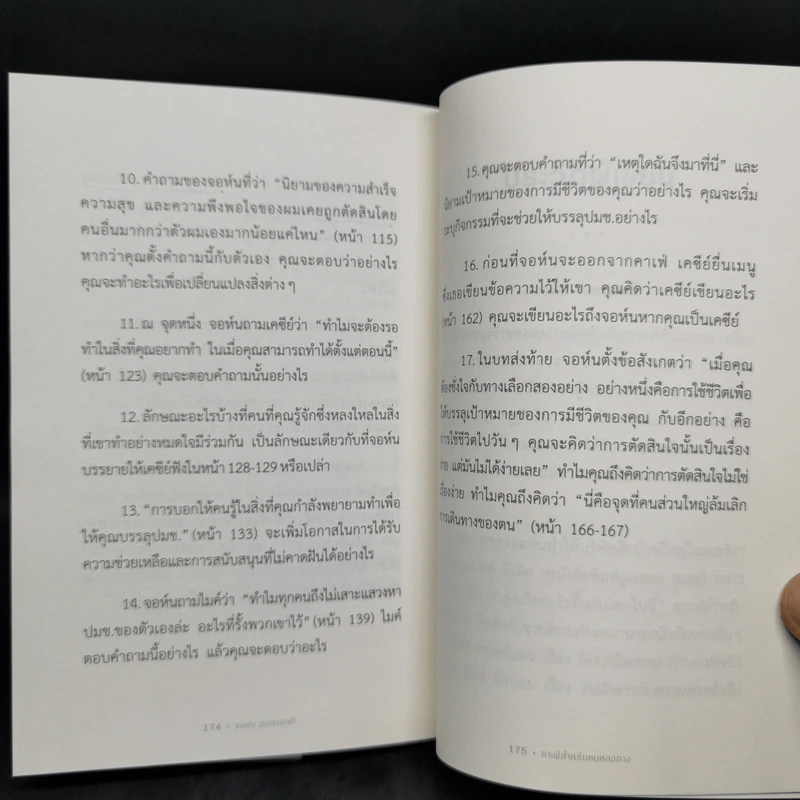 10. คำถามของจอห์นที่ว่า “นิยามของความสำเร็จ
ความสุข และความพึงพอใจของผมเคยถูกตัดสินโดย
คนอื่นมากกว่าตัวผมเองมากน้อยแค่ไหน” (หน้า 115)
หากว่าคุณตั้งคำถามนี้กับตัวเอง คุณจะตอบว่าอย่างไร
คุณจะทำอะไรเพื่อเปลี่ยนแปลงสิ่งต่าง ๆ
11. ณ จุดหนึ่ง จอห์นถามเคซีย์ว่า “ทำไมจะต้องรอ
ทำในสิ่งที่คุณอยากทำ ในเมื่อคุณสามารถทำได้ตั้งแต่ตอนนี้”
(หน้า 123) คุณจะตอบคำถามนั้นอย่างไร
12. ลักษณะอะไรบ้างที่คนที่คุณรู้จักซึ่งหลงใหลในสิ่ง
ที่เขาทำอย่างหมดใจมีร่วมกัน เป็นลักษณะเดียวกับที่จอห์น
บรรยายให้เคซีย์ฟังในหน้า 128-129 หรือเปล่า
13. “การบอกให้คนรู้ในสิ่งที่คุณกำลังพยายามทำเพื่อ
ให้คุณบรรลุปมช.” (หน้า 133) จะเพิ่มโอกาสในการได้รับ
ความช่วยเหลือและการสนับสนุนที่ไม่คาดฝันได้อย่างไร
14. จอห์นถามไมค์ว่า “ทำไมทุกคนถึงไม่เสาะแสวงหา
ปมช.ของตัวเองล่ะ อะไรที่รั้งพวกเขาไว้” (หน้า 139) ไมค์
ตอบคำถามนี้อย่างไร แล้วคุณจะตอบว่าอะไร
174 • จอห์น สเตรเลกกี
15. คุณจะตอบคำถามที่ว่า “เหตุใดฉันจึงมาที่นี่” และ
นิยามเป้าหมายของการมีชีวิตของคุณว่าอย่างไร คุณจะเริ่ม
ระบุกิจกรรมที่จะช่วยให้บรรลุปมช.อย่างไร
16. ก่อนที่จอห์นจะออกจากคาเฟ่ เคซีย์ยื่นเมนู
ซึ่งเธอเขียนข้อความไว้ให้เขา คุณคิดว่าเคซีย์เขียนอะไร
(หน้า 162) คุณจะเขียนอะไรถึงจอห์นหากคุณเป็นเคซีย์
17. ในบทส่งท้าย จอห์นตั้งข้อสังเกตว่า “เมื่อคุณ
ต้องชั่งใจกับทางเลือกสองอย่าง อย่างหนึ่งคือการใช้ชีวิตเพื่อ
ให้บรรลุเป้าหมายของการมีชีวิตของคุณ กับอีกอย่าง คือ
การใช้ชีวิตไปวัน ๆ คุณจะคิดว่าการตัดสินใจนั้นเป็นเรื่อง
ง่าย แต่มันไม่ได้ง่ายเลย” ทำไมคุณถึงคิดว่าการตัดสินใจไม่ใช่
เรื่องง่าย ทำไมคุณถึงคิดว่า “นี่คือจุดที่คนส่วนใหญ่ล้มเลิก
การเดินทางของตน” (หน้า 166-167)
175 • คาเฟ่สำหรับคนหลงทาง